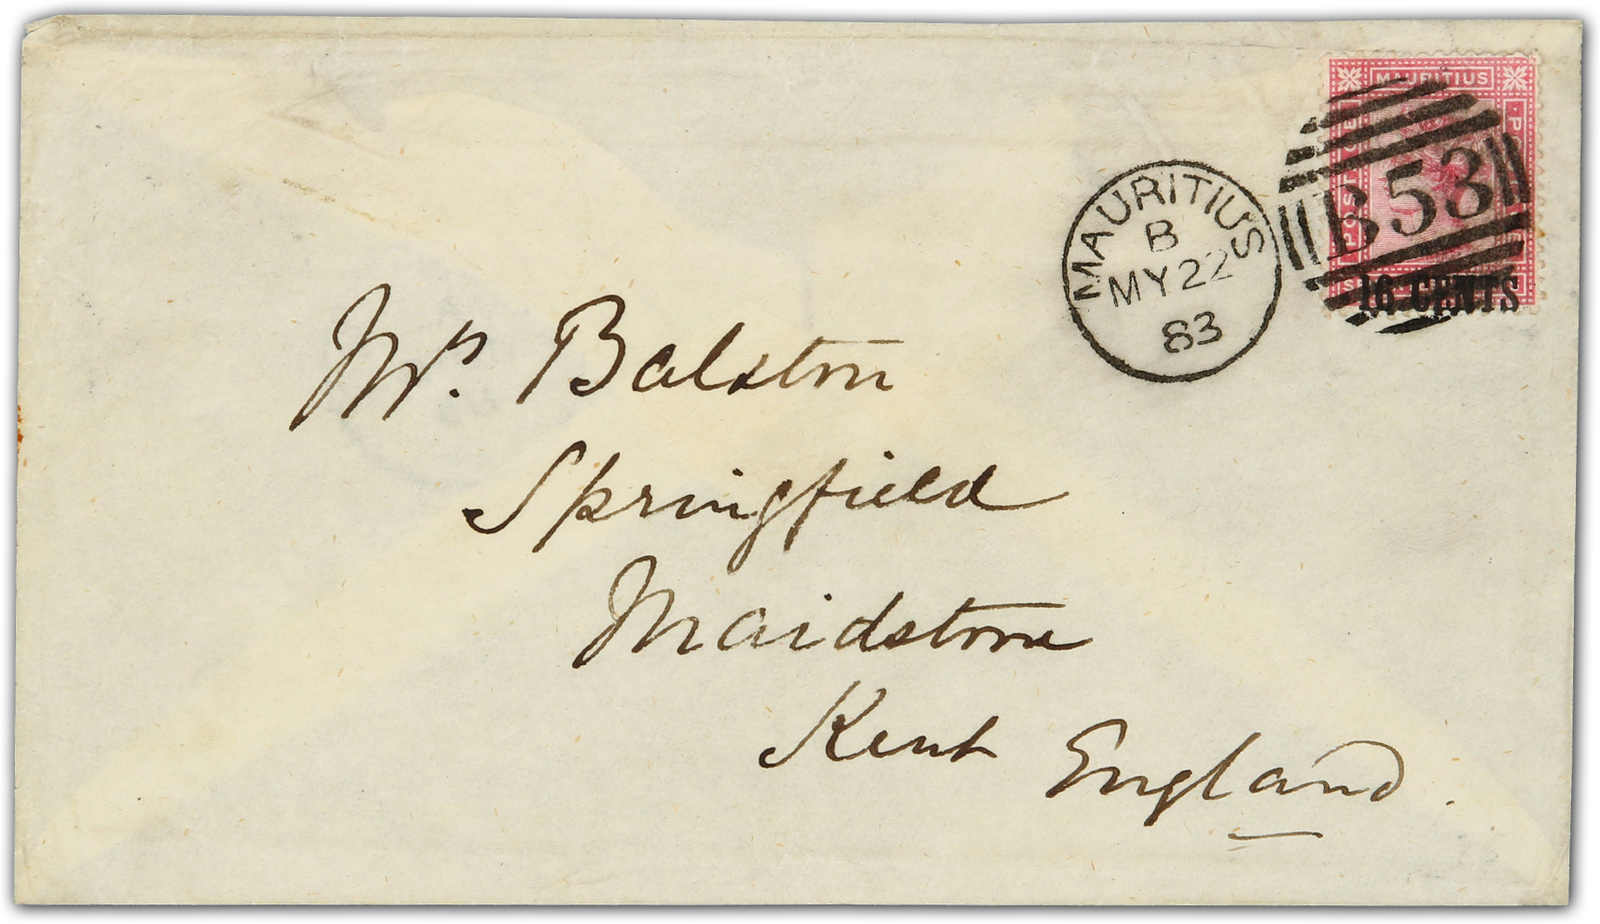 MAURITIUS
POSTAGE
16 CENTS
B53
MAURITIUS
B
MY 22
83
Mr. Balston
Springfield
Maidstone
Kent England.